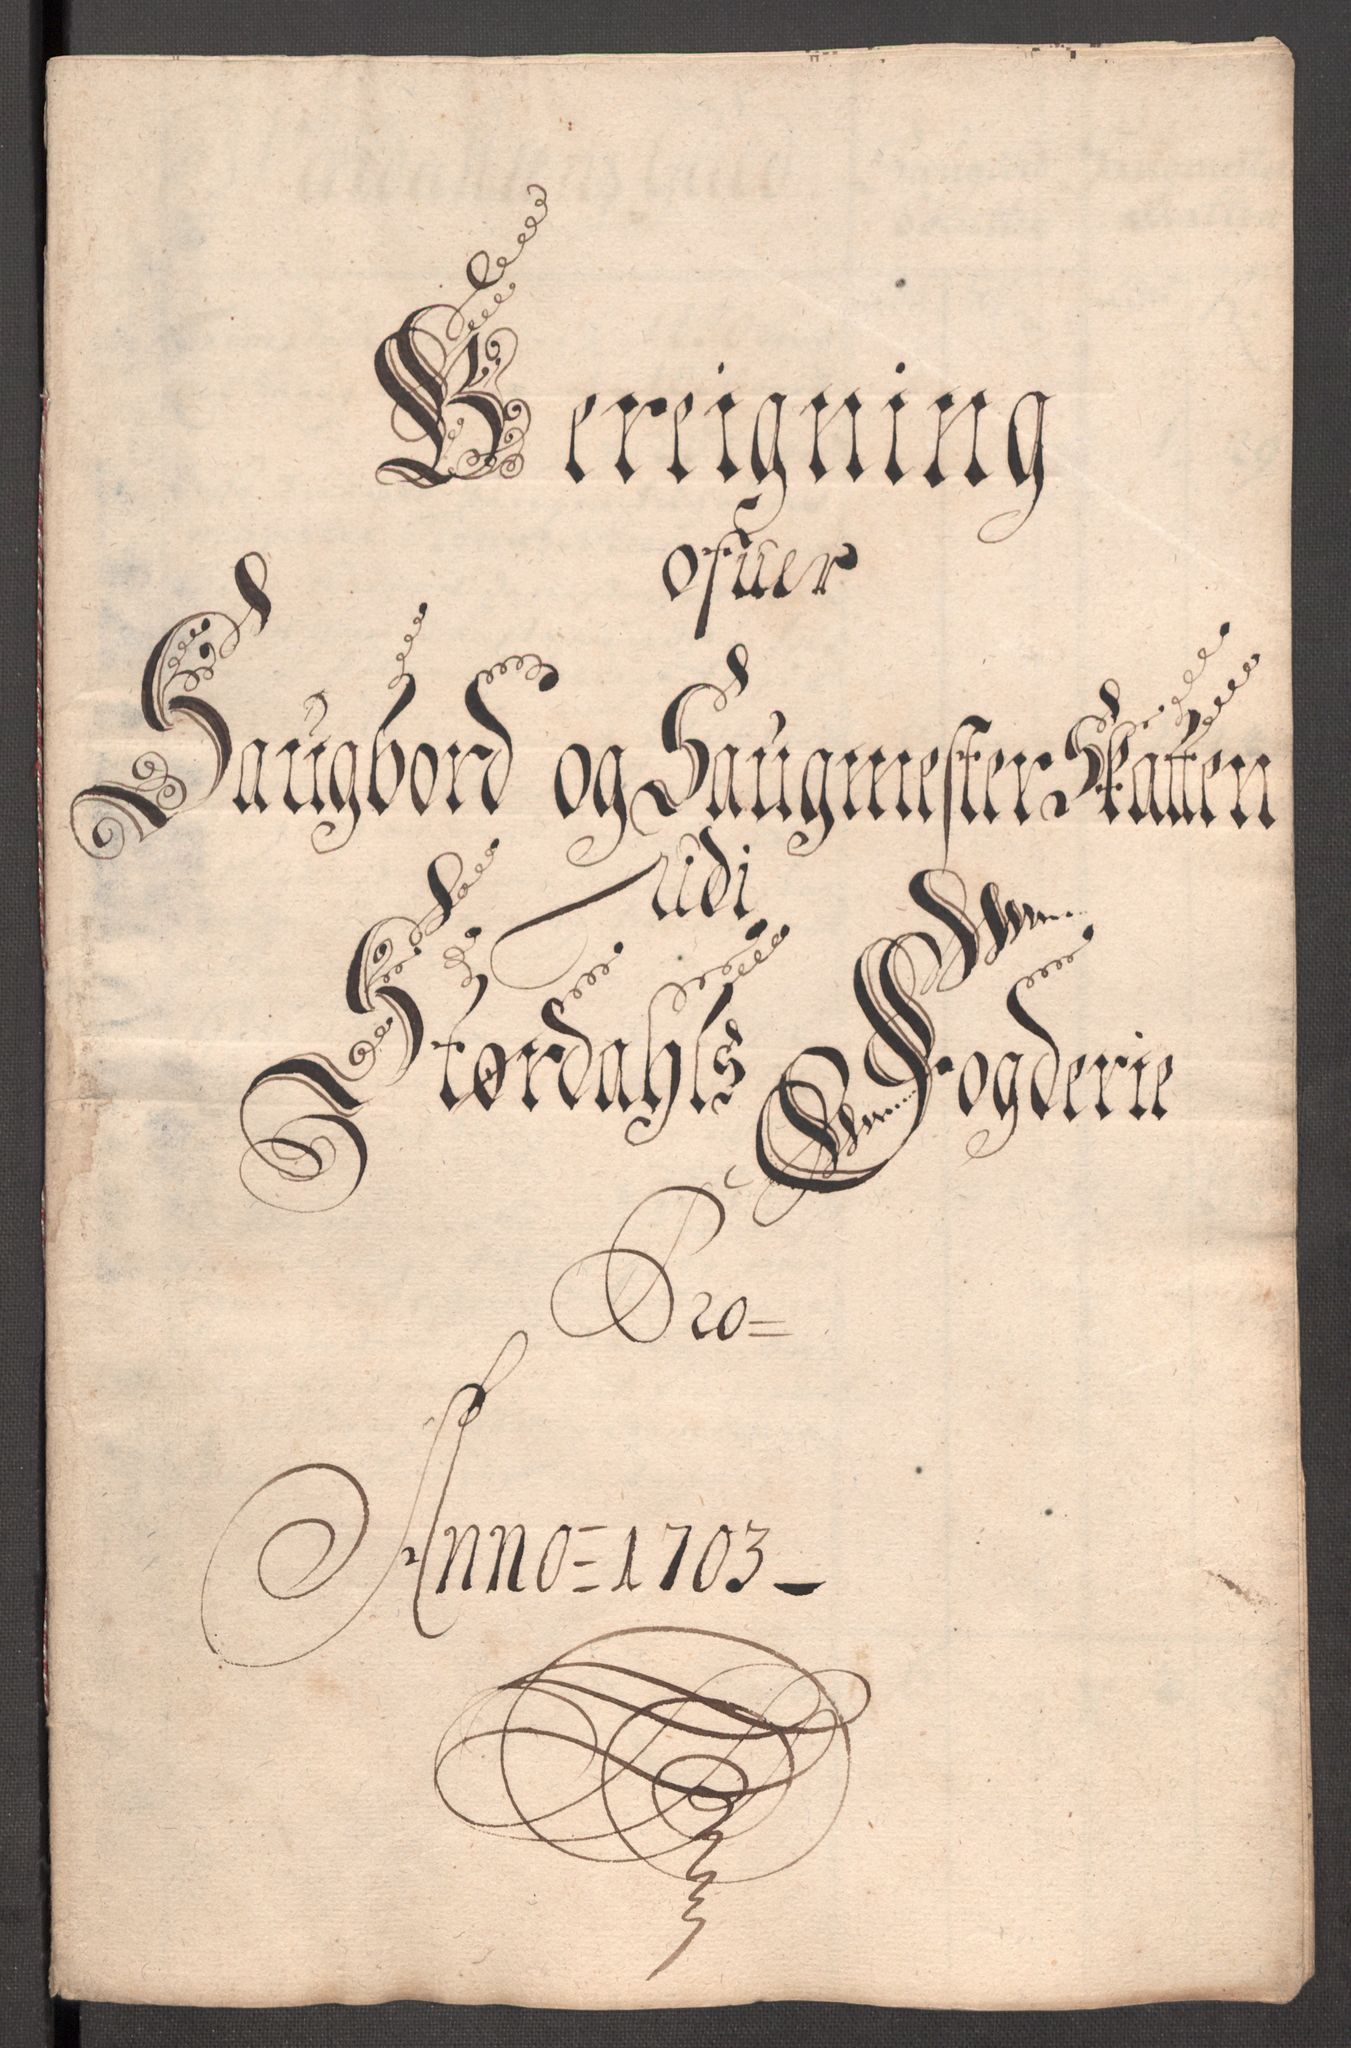 Bereigning
ofuer
Saugbord og Saugmester Skatten
udi
Størdahls Fogderie
Pro=
Anno=1703_